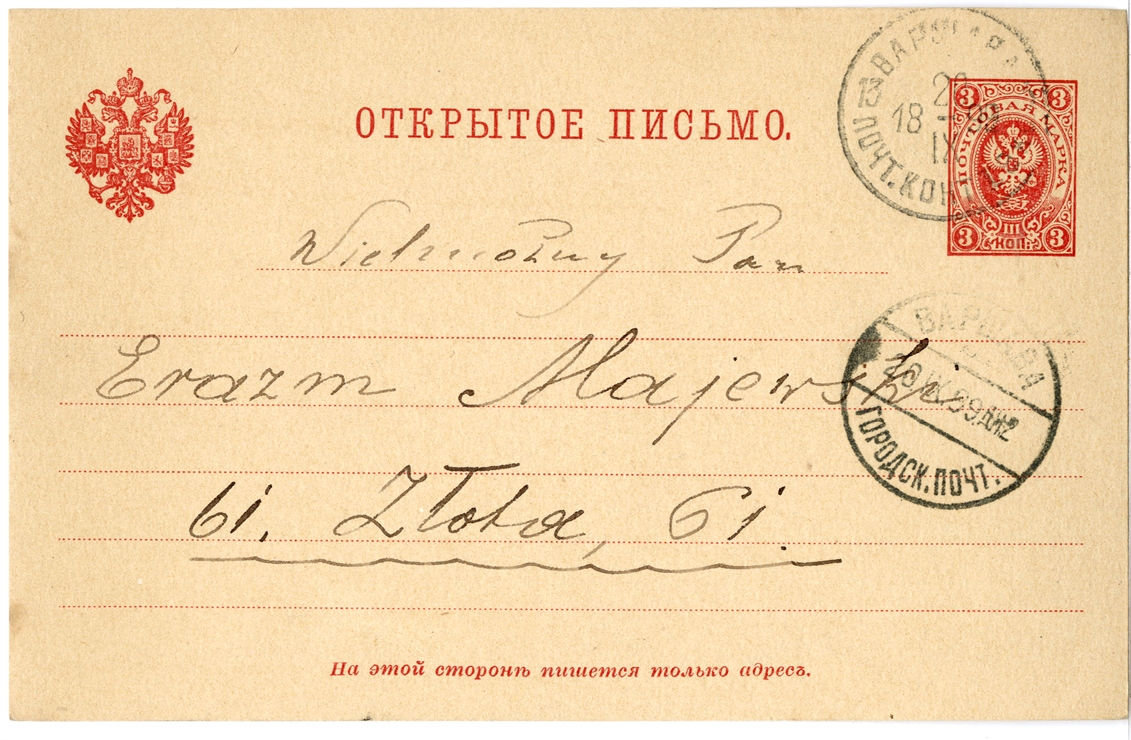 ОТКРЫТОЕ ПИСЬМО.
ВАРШАВА
13
18
IX
ПОЧТ. КОН
3 3
ПОЧТОВАЯ МАРКА
III
3 КОП. 3
Wielmożny Pan
Erazm Majewski
61. Złota, 61.
ВАРШАВА
IX 99
ГОРОДСК. ПОЧТ.
На этой сторонѣ пишется только адресъ.